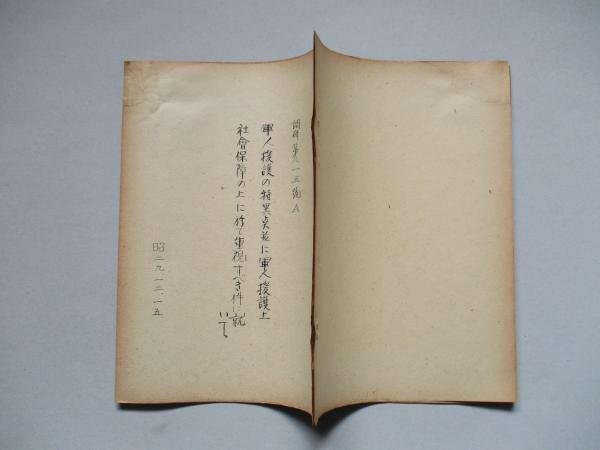 第九一五号A
軍人援護の特異点並に軍人援護上
社會保障の上に於て重視すべき件に就
いて
昭二九.一二.一五